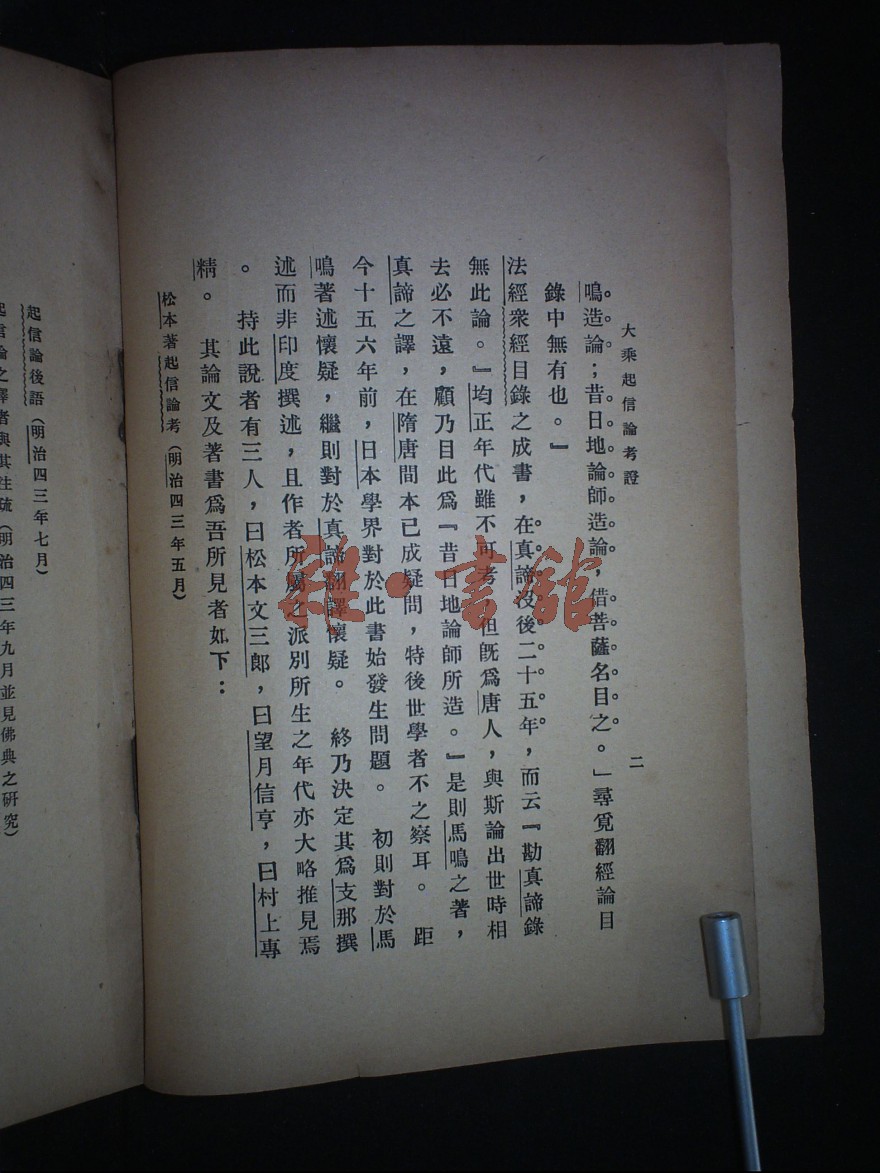 大乘起信論考證
二
鳴造論；昔日地論師造論，借菩薩名目之。」尋覓翻經論目
錄中無有也。』
法經衆經目錄之成書，在真諦沒後二十五年，而云『勘真諦錄
無此論。』均正年代雖不可考，但旣爲唐人，與斯論出世時相
去必不遠，顧乃目此爲『昔日地論師所造。』是則馬鳴之著，
真諦之譯，在隋唐間本已成疑問，特後世學者不之察耳。 距
今十五六年前，日本學界對於此書始發生問題。 初則對於馬
鳴著述懷疑，繼則對於真諦翻譯懷疑。 終乃決定其爲支那撰
述而非印度撰述，且作者所屬之派別所生之年代亦大略推見焉
。 持此說者有三人，曰松本文三郎，曰望月信亨，曰村上專
精。 其論文及著書爲吾所見者如下：
松本著起信論考（明治四三年五月）
起信論後語（明治四三年七月）
起信論之譯者與其註疏（明治四三年九月並見佛典之研究）
雜·書館